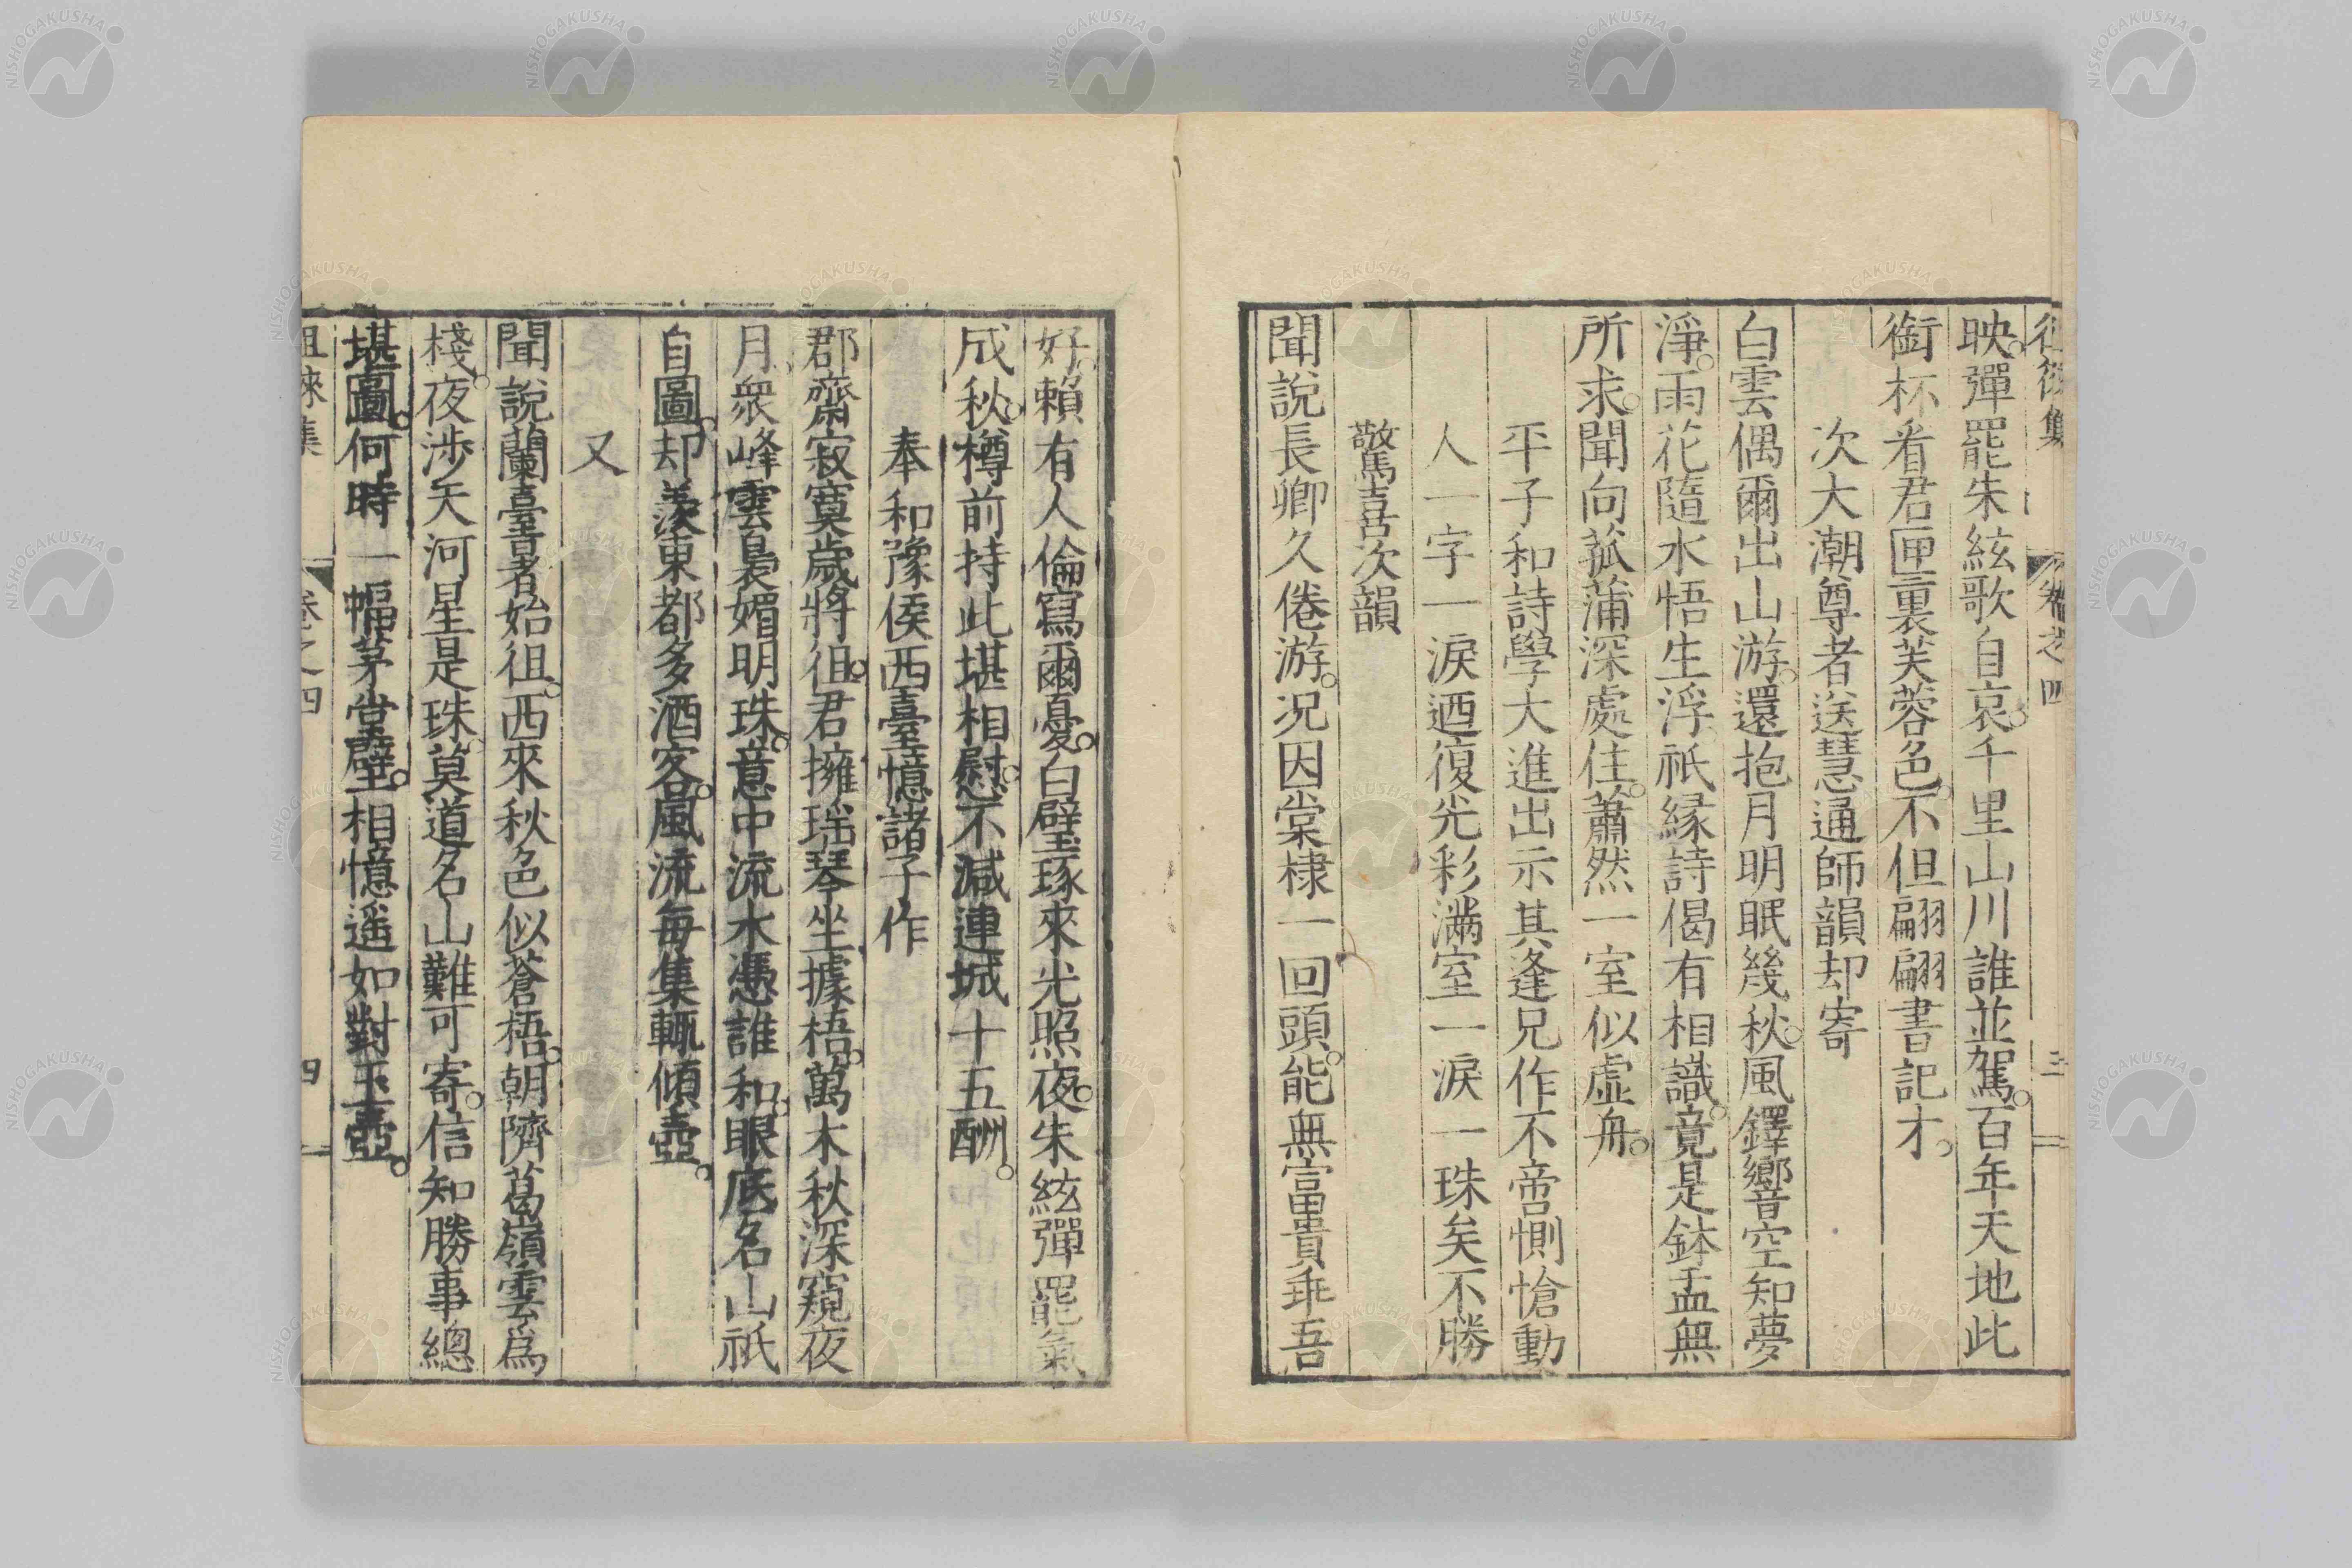 映彈罷朱絃歌自哀千里山川誰並駕百年天地此
銜杯看君匣裏芙蓉色不但翩翩書記才
次大潮尊者送慧通師韻却寄
白雲偶爾出山游還抱月明眠幾秋風鐸響空知夢
淨雨花隨水悟生浮祇緣詩偈有相識竟是鉢盂無
所求聞向菰蒲深處住蕭然一室似虛舟
平子和詩學大進出示其逢兄作不啻惻愴動
人一字一淚迺復光彩滿室一淚一珠矣不勝
驚喜次韻
聞說長卿久倦游况因棠棣一回頭能無富貴乖吾
好賴有人倫寫爾憂白璧琢來光照夜朱絃彈罷氣
成秋樽前持此堪相慰不減連城十五酬
奉和豫侯西臺憶諸子作
郡齋寂寞歲將徂君擁瑶琴坐據梧萬木秋深窺夜
月衆峰雲裊媚明珠意中流水憑誰和眼底名山祇
自圖却羨東都多酒客風流每集輒傾壺
又
聞說蘭臺書始徂西來秋色似蒼梧朝隮葛嶺雲爲
棧夜涉天河星是珠莫道名山難可寄信知勝事總
堪圖何時一幅茅堂壁相憶遥如對玉壺
徂徠集 卷之四 四
NISHOGAKUSHA